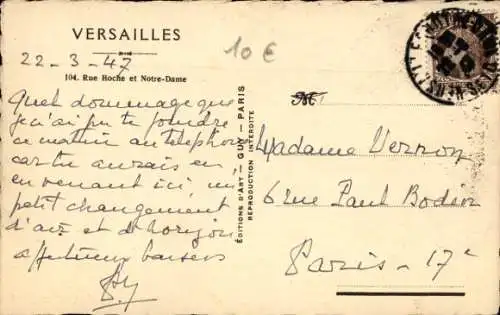 VERSAILLES
10 €
22-3-47
104. Rue Hoche et Notre-Dame
Quel dommage que
je n'ai pu te joindre
ce matin au téléphone
car tu aurais eu,
en venant ici, un
petit changement
d'air et d'horizon
affectueux baisers
EDITIONS D'ART - GUY - PARIS
REPRODUCTION INTERDITE
Madame Vernon
6 rue Paul Bodin
Paris - 17e